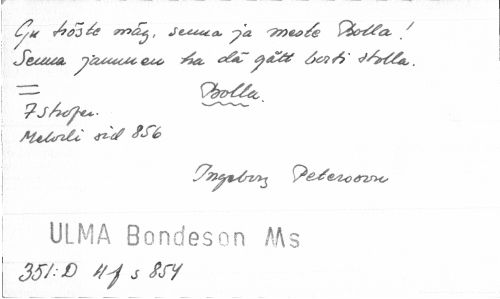 Gu tröste mäg, senna ja meste Bolla!
Senna jammen ha dä gått borti stolla.
Bolla.
7 strofer.
Melodi sid 856
Ingeborg Petersson
ULMA Bondeson Ms
351:D 4f s 854